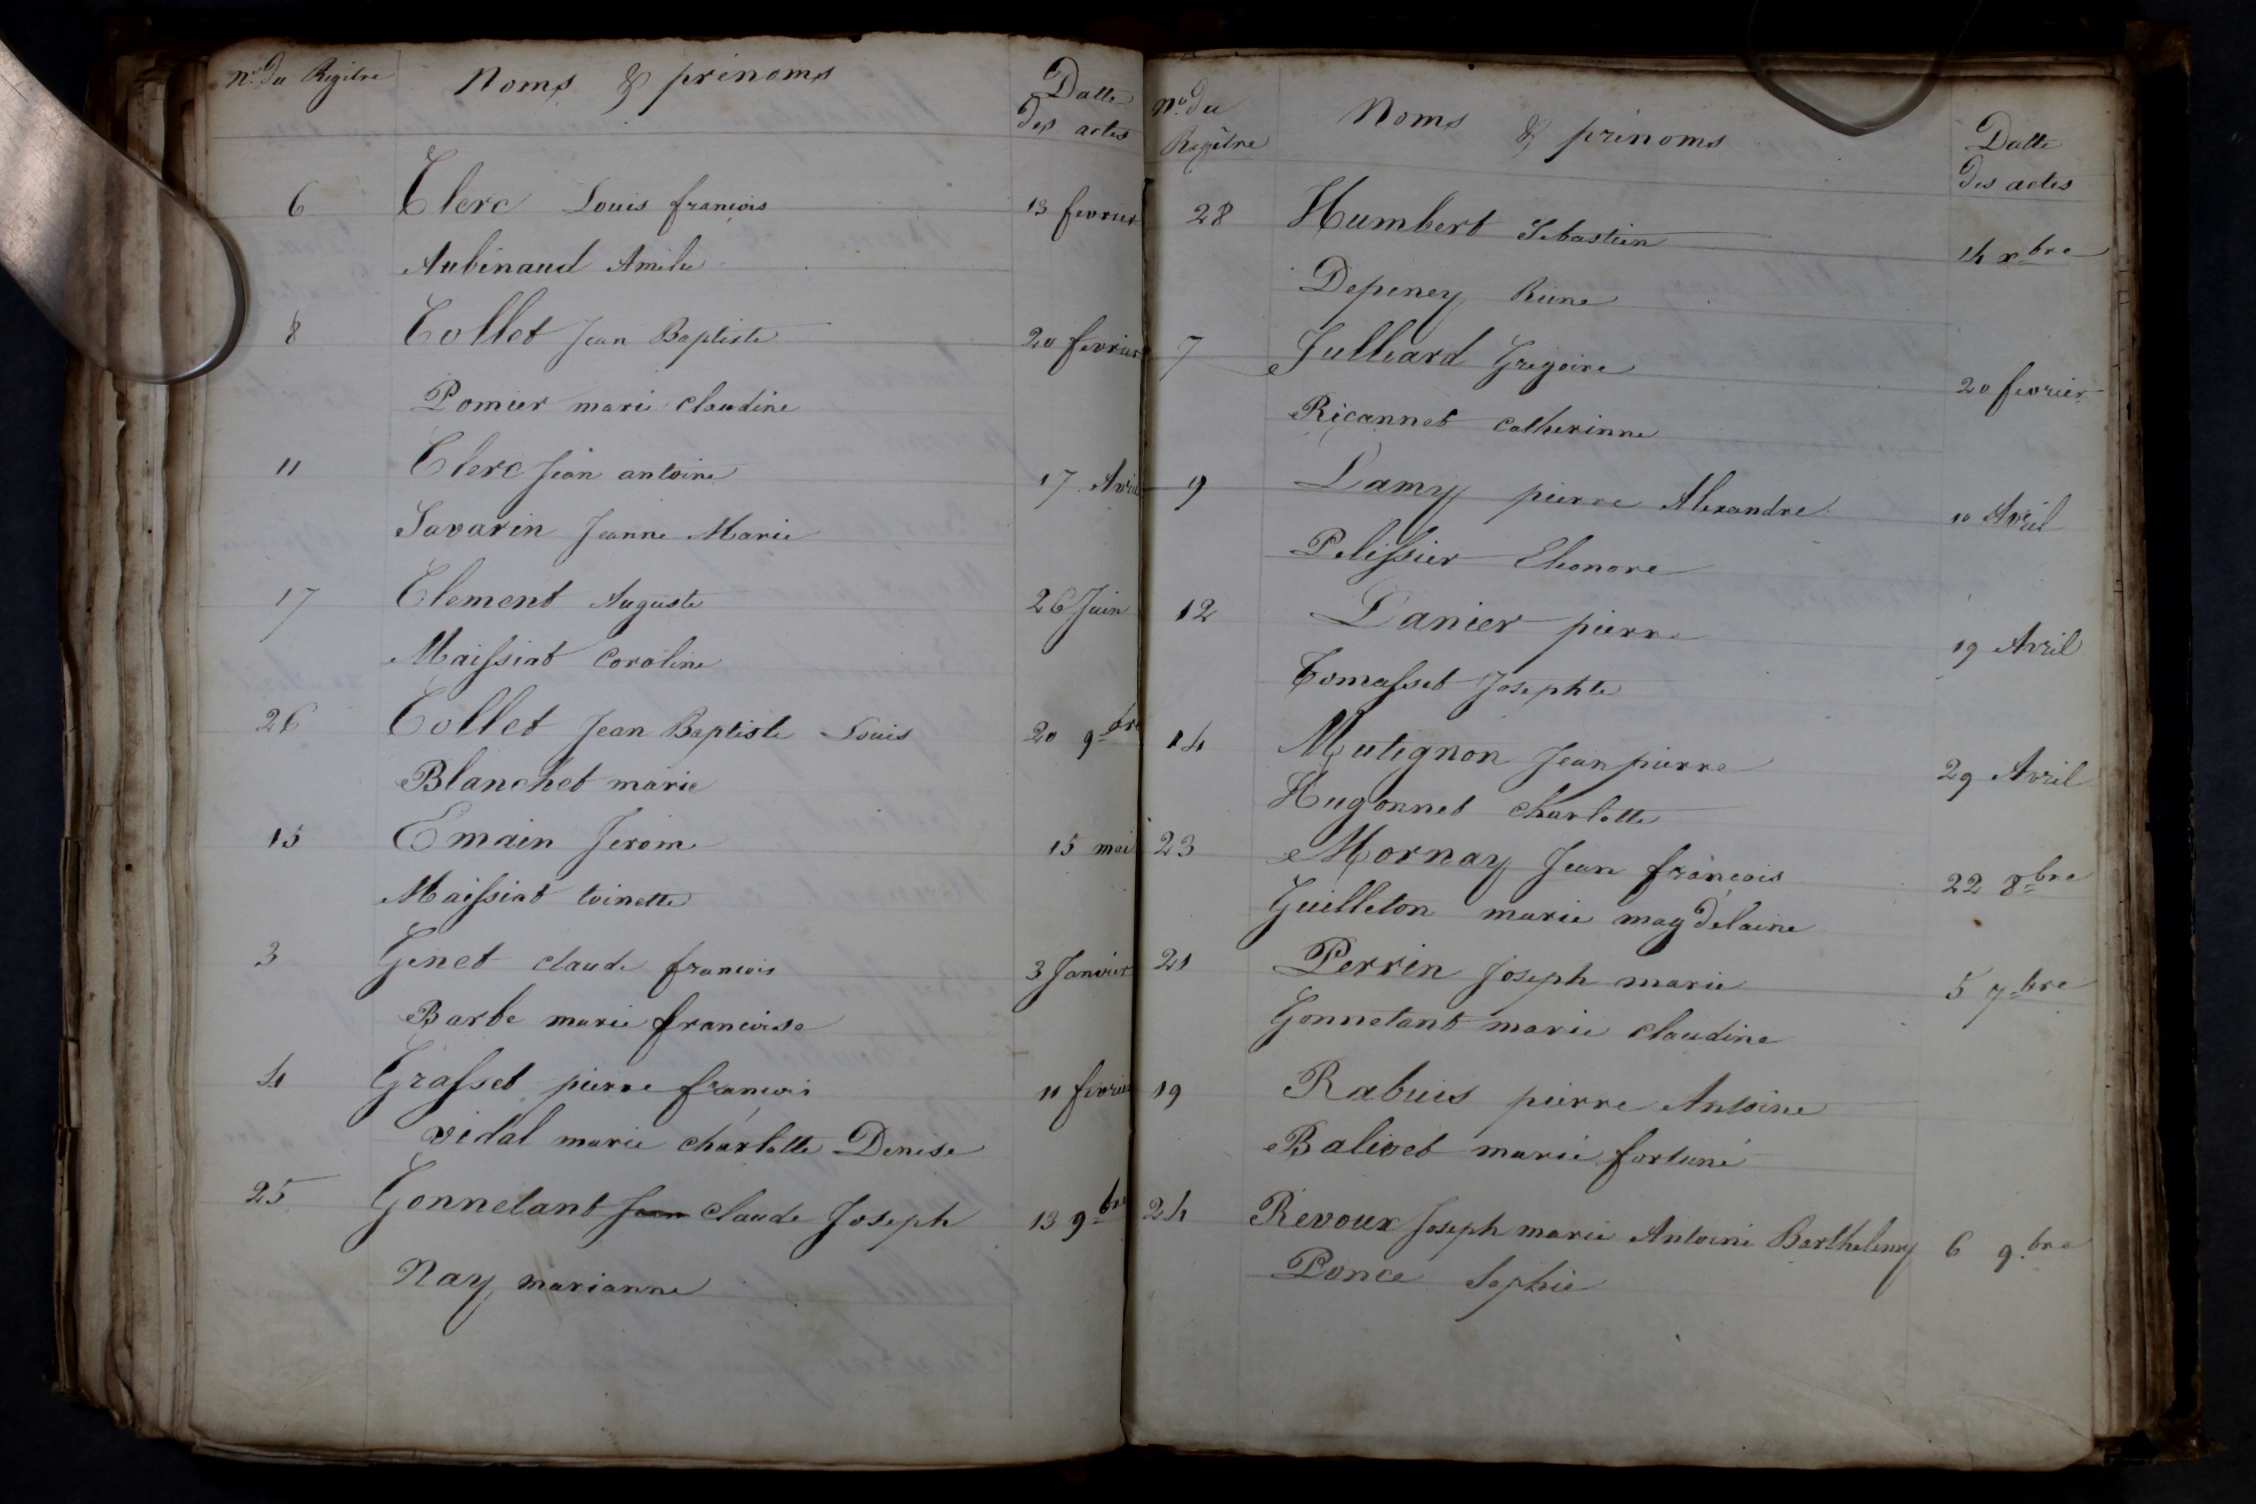 No. Du Regitre Noms & prénoms Datte
Des actes
6 Clerc Louis françois 13 fevrier
Aubinaud Amelie
8 Collet Jean Baptiste 20 fevrier
Pomier marie claudine
11 Clerc Jean antoine 17 Avril
Savarin Jeanne Marie
17 Clement Auguste 26 Juin
Maissiat Caroline
26 Collet Jean Baptiste Louis 20 9bre
Blanchet marie
15 Emain Jerome 15 mai
Maissiat toinette
3 Genet claude francois 3 Janvier
Barbe marie francoise
4 Grasset pierre francois 11 fevrier
vidal marie charlotte Denise
25 Gonnetant Jean claude Joseph 13 9bre
Nay marianne
No. du
Regitre Noms & prénoms Datte
des actes
28 Humbert Sebastien 14 xbre
Depeney Reine
7 Julliard Gregoire 20 fevrier
Ricannet catherinne
9 Lamy pierre Alexandre 10 Avril
Pelissier Eleonore
12 Lanier pierre 19 Avril
Tomasset Josephte
14 Mutignon Jean pierre 29 Avril
Hugonnet charlotte
23 Mornay Jean françois 22 8bre
Guilleton marie magdelaine
21 Perrin Joseph marie 5 7bre
Gonnetant marie claudine
19 Rabuis pierre Antoine
Balivet marie fortuné
24 Revoux Joseph marie Antoine Barthelemy 6 9bre
Ponce Sophie